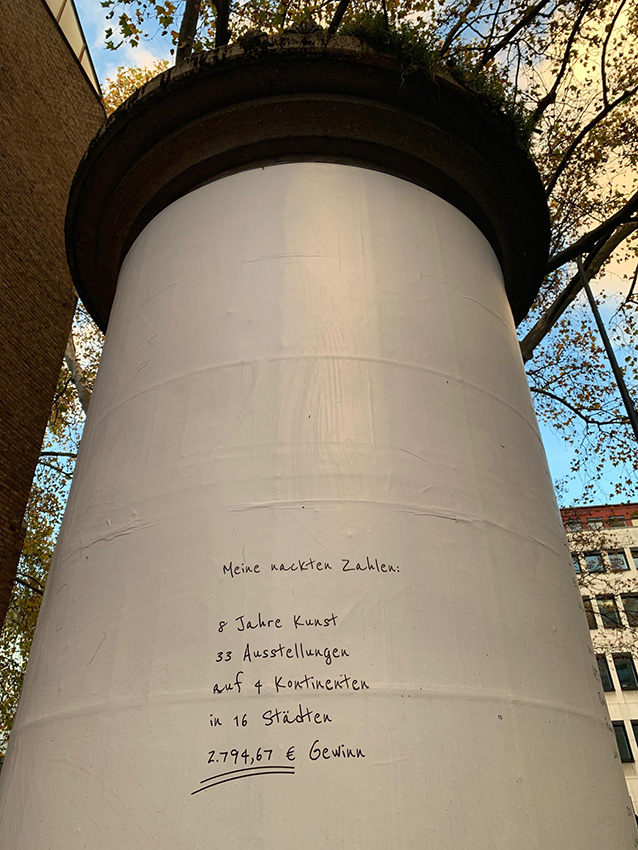 Meine nackten Zahlen:
8 Jahre Kunst
33 Ausstellungen
auf 4 Kontinenten
in 16 Städten
2.794,67 € Gewinn